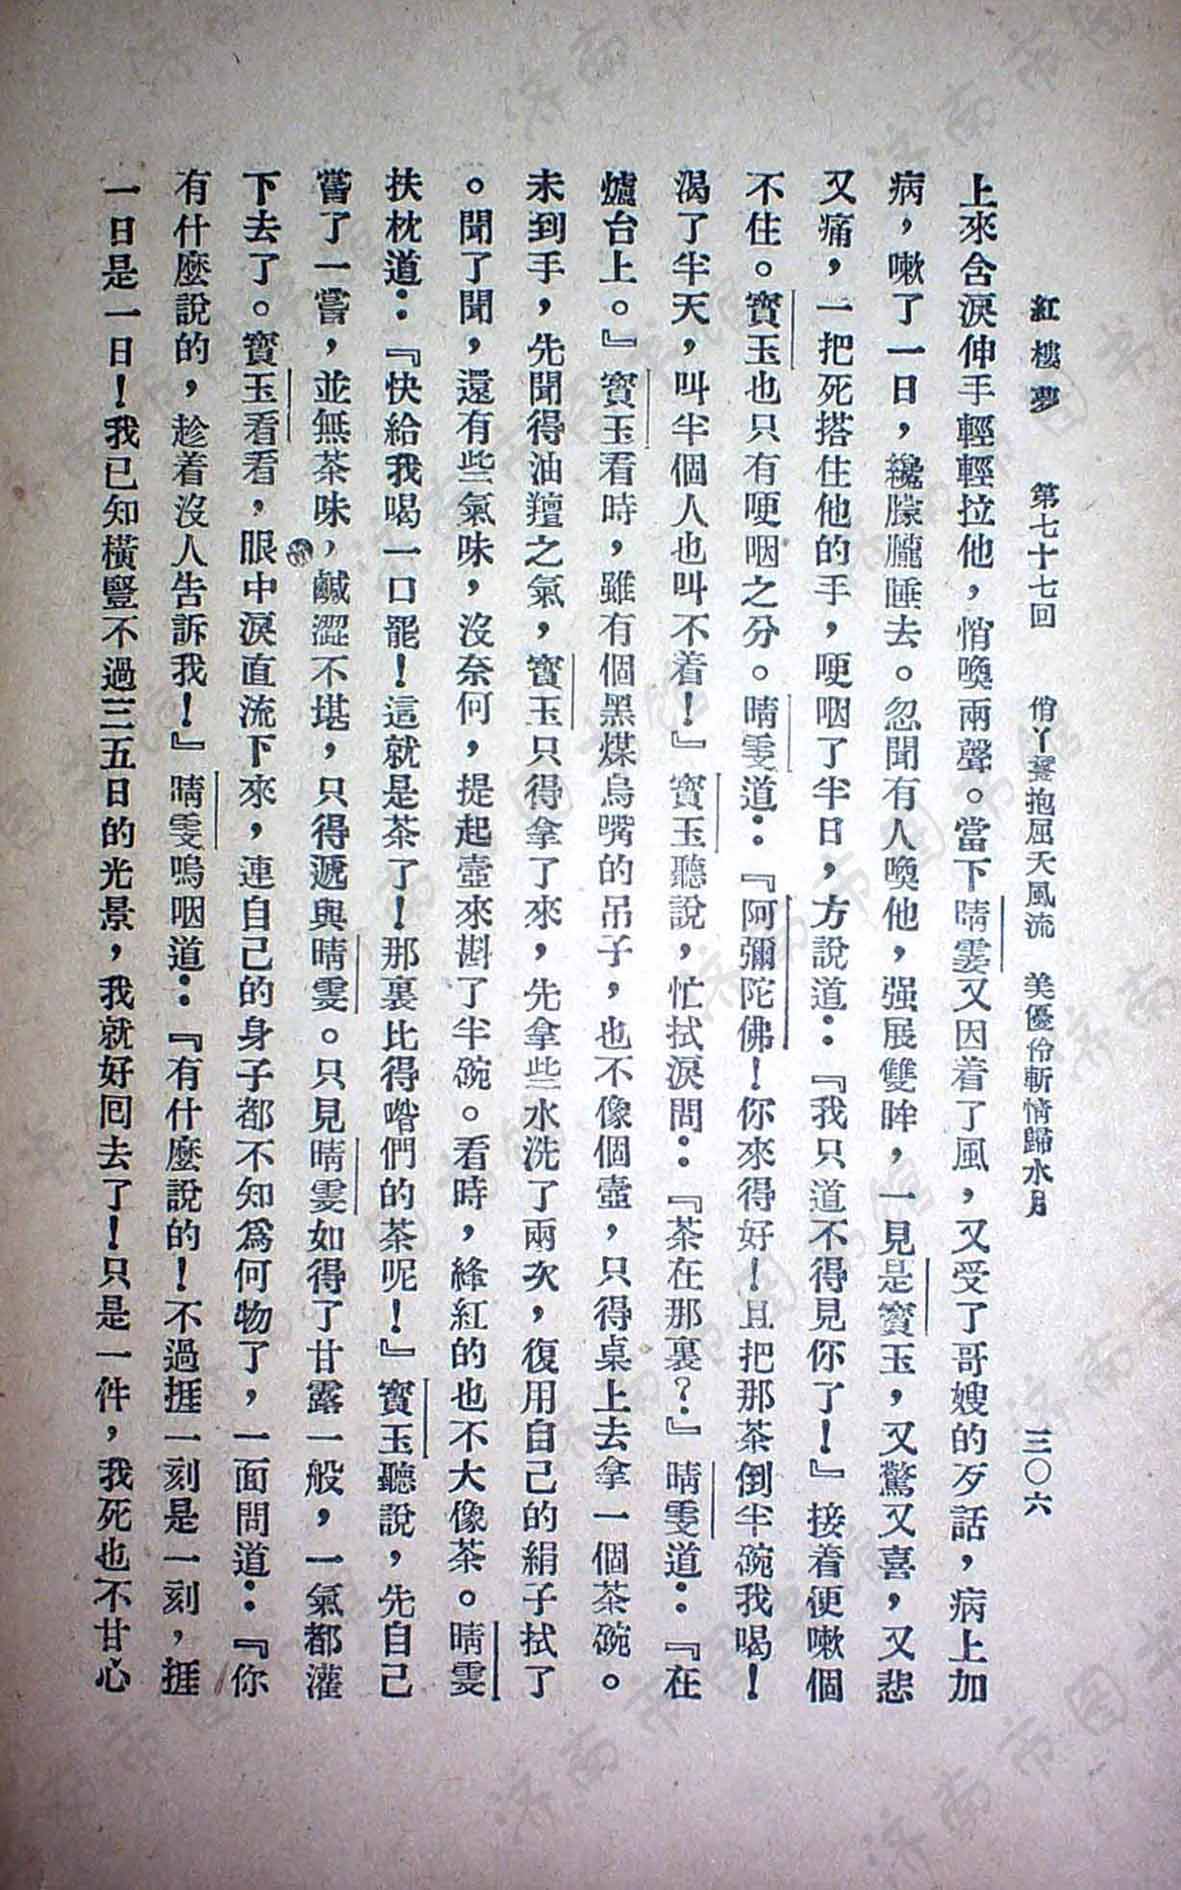 紅樓夢　第七十七回　俏丫鬟抱屈夭風流　美優伶斬情歸水月　三〇六
上來含淚伸手輕輕拉他，悄喚兩聲。當下晴雯又因着了風，又受了哥嫂的歹話，病上加
病，嗽了一日，纔朦朧睡去。忽聞有人喚他，强展雙眸，一見是寶玉，又驚又喜，又悲
又痛，一把死搭住他的手，哽咽了半日，方說道：『我只道不得見你了！』接着便嗽個
不住。寶玉也只有哽咽之分。晴雯道：『阿彌陀佛！你來得好！且把那茶倒半碗我喝！
渴了半天，叫半個人也叫不着！』寶玉聽說，忙拭淚問：『茶在那裏？』晴雯道：『在
爐台上。』寶玉看時，雖有個黑煤烏嘴的吊子，也不像個壺，只得桌上去拿一個茶碗。
未到手，先聞得油羶之氣，寶玉只得拿了來，先拿些水洗了兩次，復用自己的絹子拭了
。聞了聞，還有些氣味，沒奈何，提起壺來斟了半碗。看時，絳紅的也不大像茶。晴雯
扶枕道：『快給我喝一口罷！這就是茶了！那裏比得喒們的茶呢！』寶玉聽說，先自己
嘗了一嘗，並無茶味，鹹澀不堪，只得遞與晴雯。只見晴雯如得了甘露一般，一氣都灌
下去了。寶玉看看，眼中淚直流下來，連自己的身子都不知爲何物了，一面問道：『你
有什麼說的，趁着沒人告訴我！』晴雯嗚咽道：『有什麼說的！不過捱一刻是一刻，捱
一日是一日！我已知橫豎不過三五日的光景，我就好回去了！只是一件，我死也不甘心
济南市图书馆